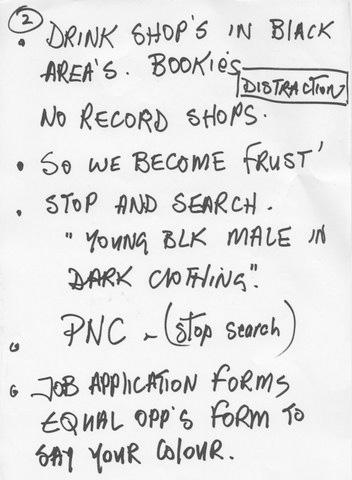 2
• DRINK SHOP'S IN BLACK
AREA'S. BOOKIES
DISTRACTION
NO RECORD SHOPS.
• SO WE BECOME FRUST'
• STOP AND SEARCH.
"YOUNG BLK MALE IN
DARK CLOTHING".
PNC - (stop search)
• JOB APPLICATION FORMS
EQUAL OPP'S FORM TO
SAY YOUR COLOUR.